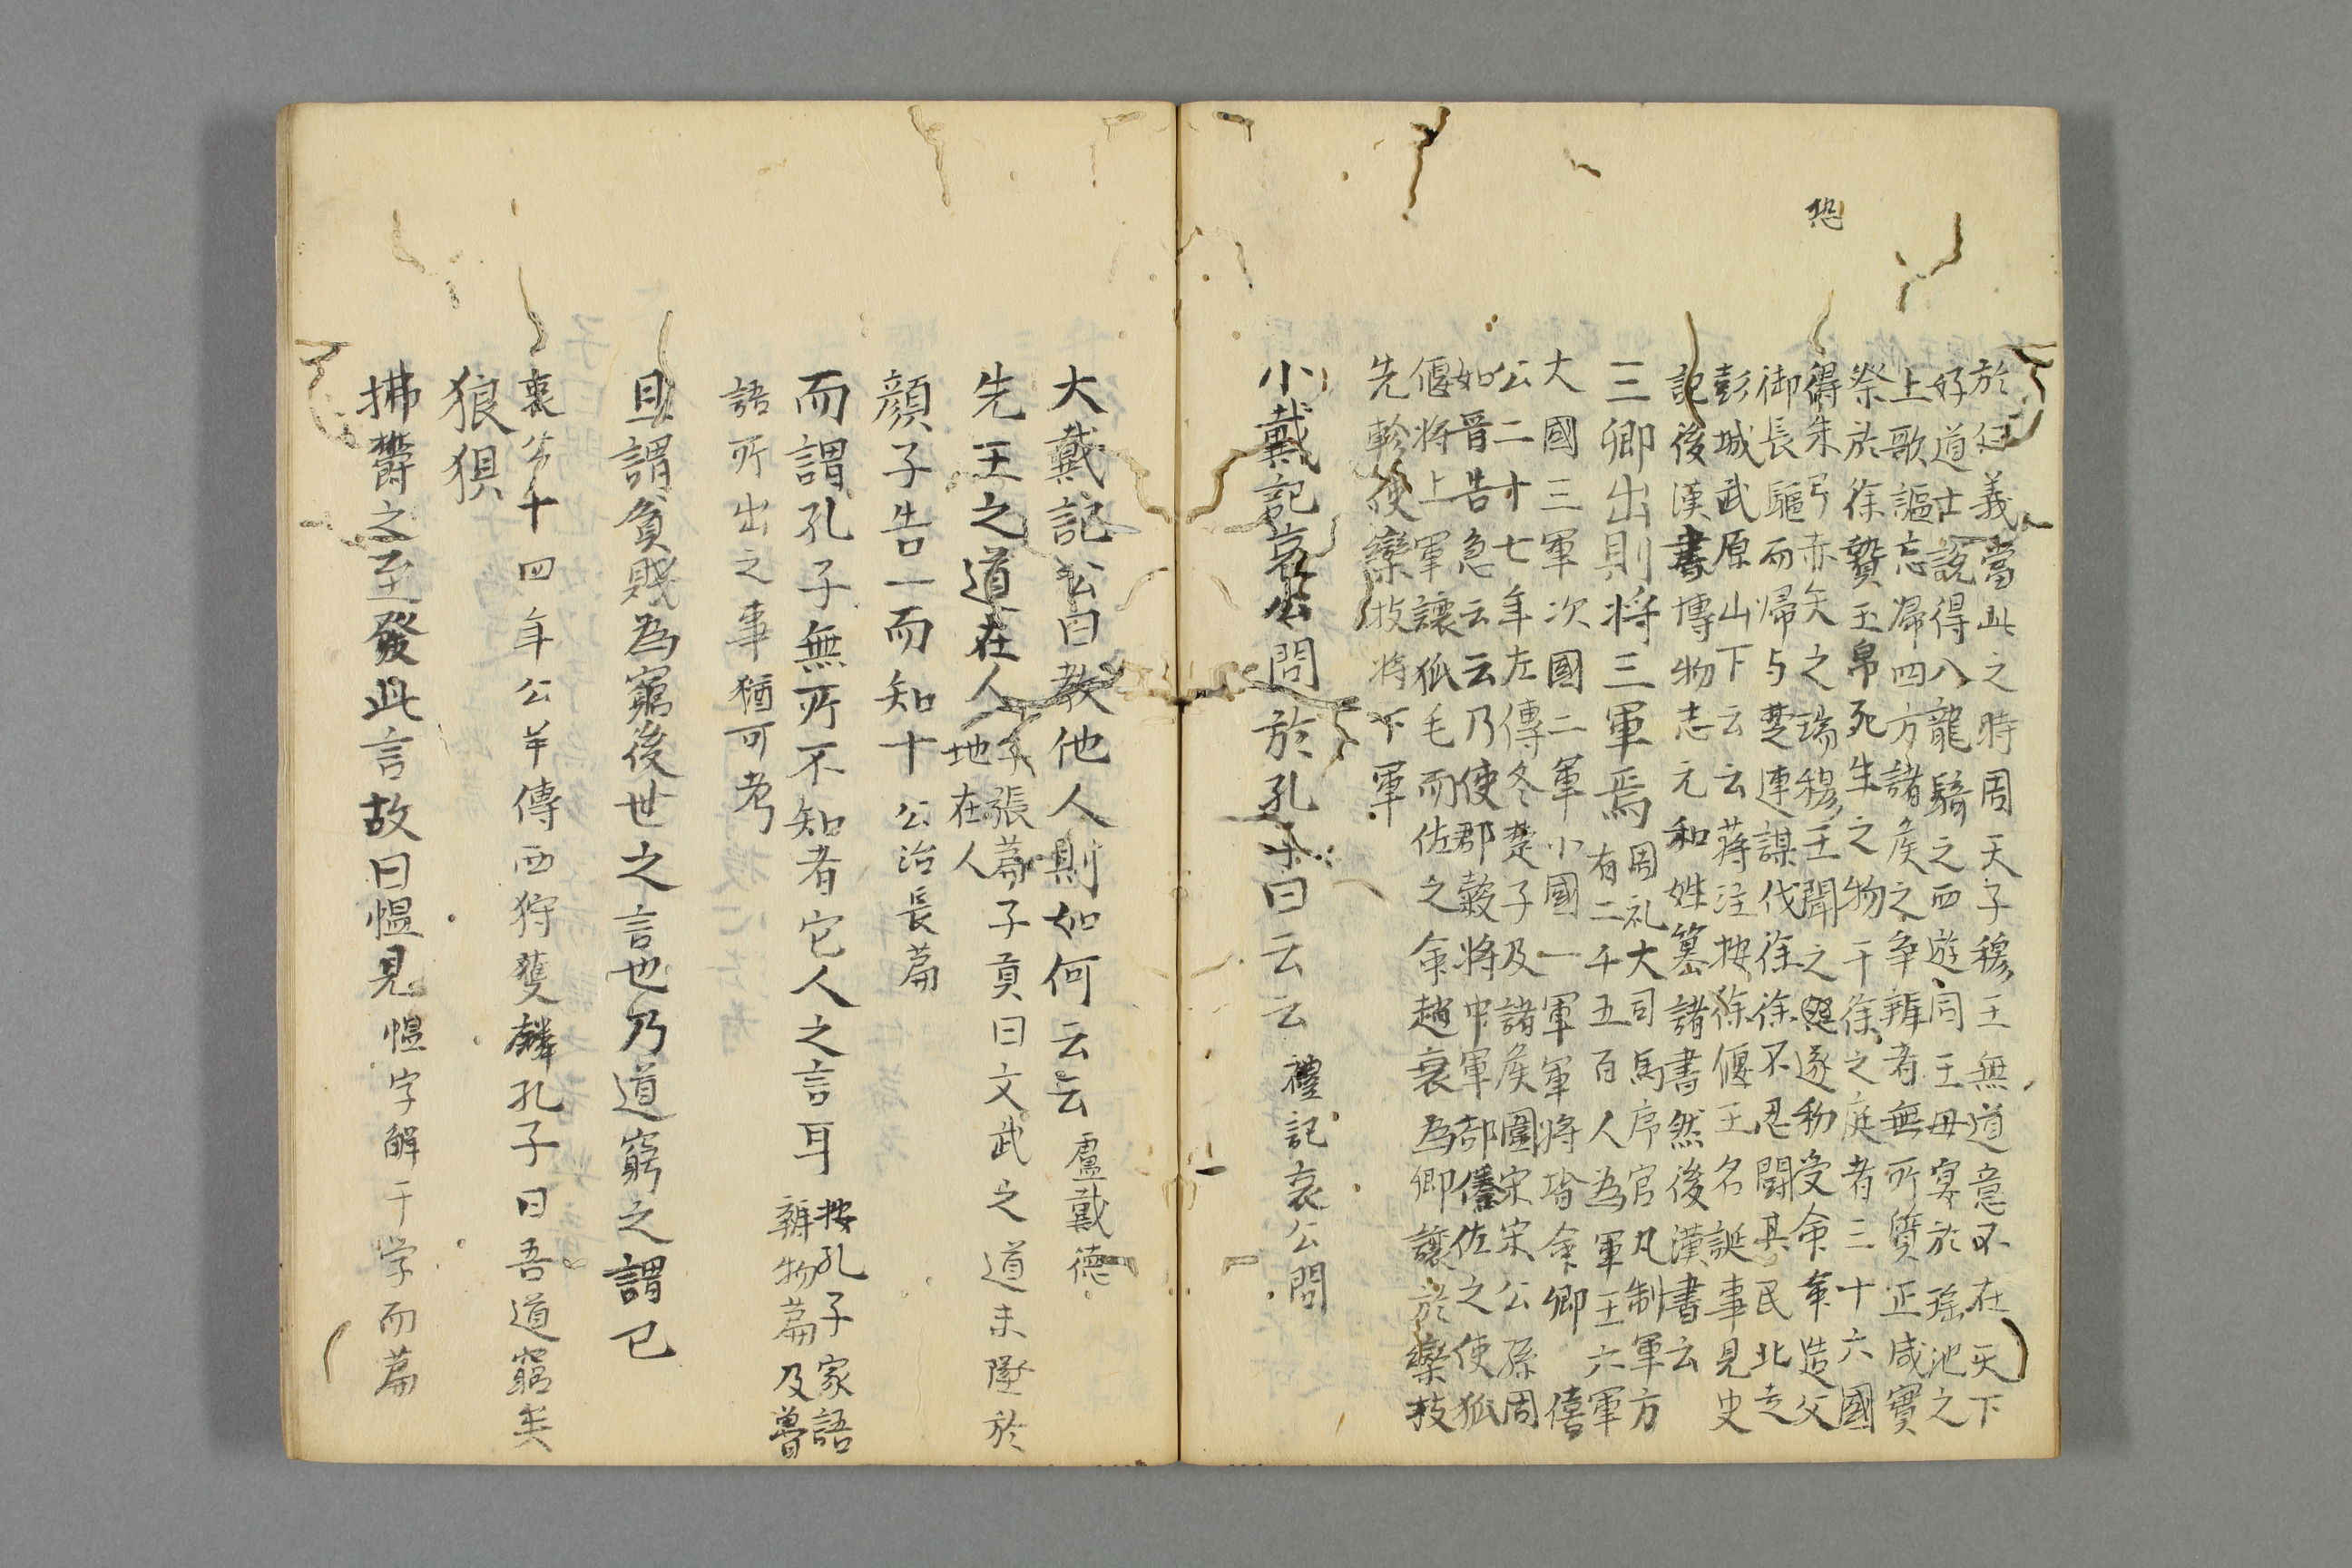 恐
於仁義當此之時周天子穆王無道意不在天下
好道士說得八龍騎之西遊同王母宴於瑤池之
上歌謳忘歸四方諸侯之爭辨者無所質正咸賓
祭於徐贄玉帛死生之物于徐之庭者三十六國
得朱弓赤矢之瑞穆王聞之遂称受命命造父
御長驅而歸与楚連謀伐徐徐不忍鬪其民北走
彭城武原山下云云蒋注按徐偃王名誕事見史
記後漢書博物志元和姓纂諸書然後漢書云
三卿出則将三軍焉 周礼大司馬序官凡制軍方
有二千五百人為軍王六軍
大國三軍次國二軍小國一軍軍将皆命卿 僖
公二十七年左傳冬楚子及諸侯圍宋宋公孫固
如晋告急云云乃使郤縠将中軍郤溱佐之使狐
偃将上軍讓狐毛而佐之命趙衰為卿讓於欒枝
先軫使欒枝将下軍
小戴記哀公問於孔子曰云云 禮記哀公問
大戴記公曰教他人則如何云云 盧戴德
先王之道在人 子張篇子貢曰文武之道未墜於
地在人
顔子告一而知十 公治長篇
而謂孔子無所不知者它人之言耳 按孔子家語
辨物篇及魯
語所出之事猶可考
且謂貧賤為窮後世之言也乃道窮之謂已
哀公十四年公羊傳西狩獲麟孔子曰吾道窮矣
狼狽
拂欝之至發此言故曰慍見 慍字解于学而篇